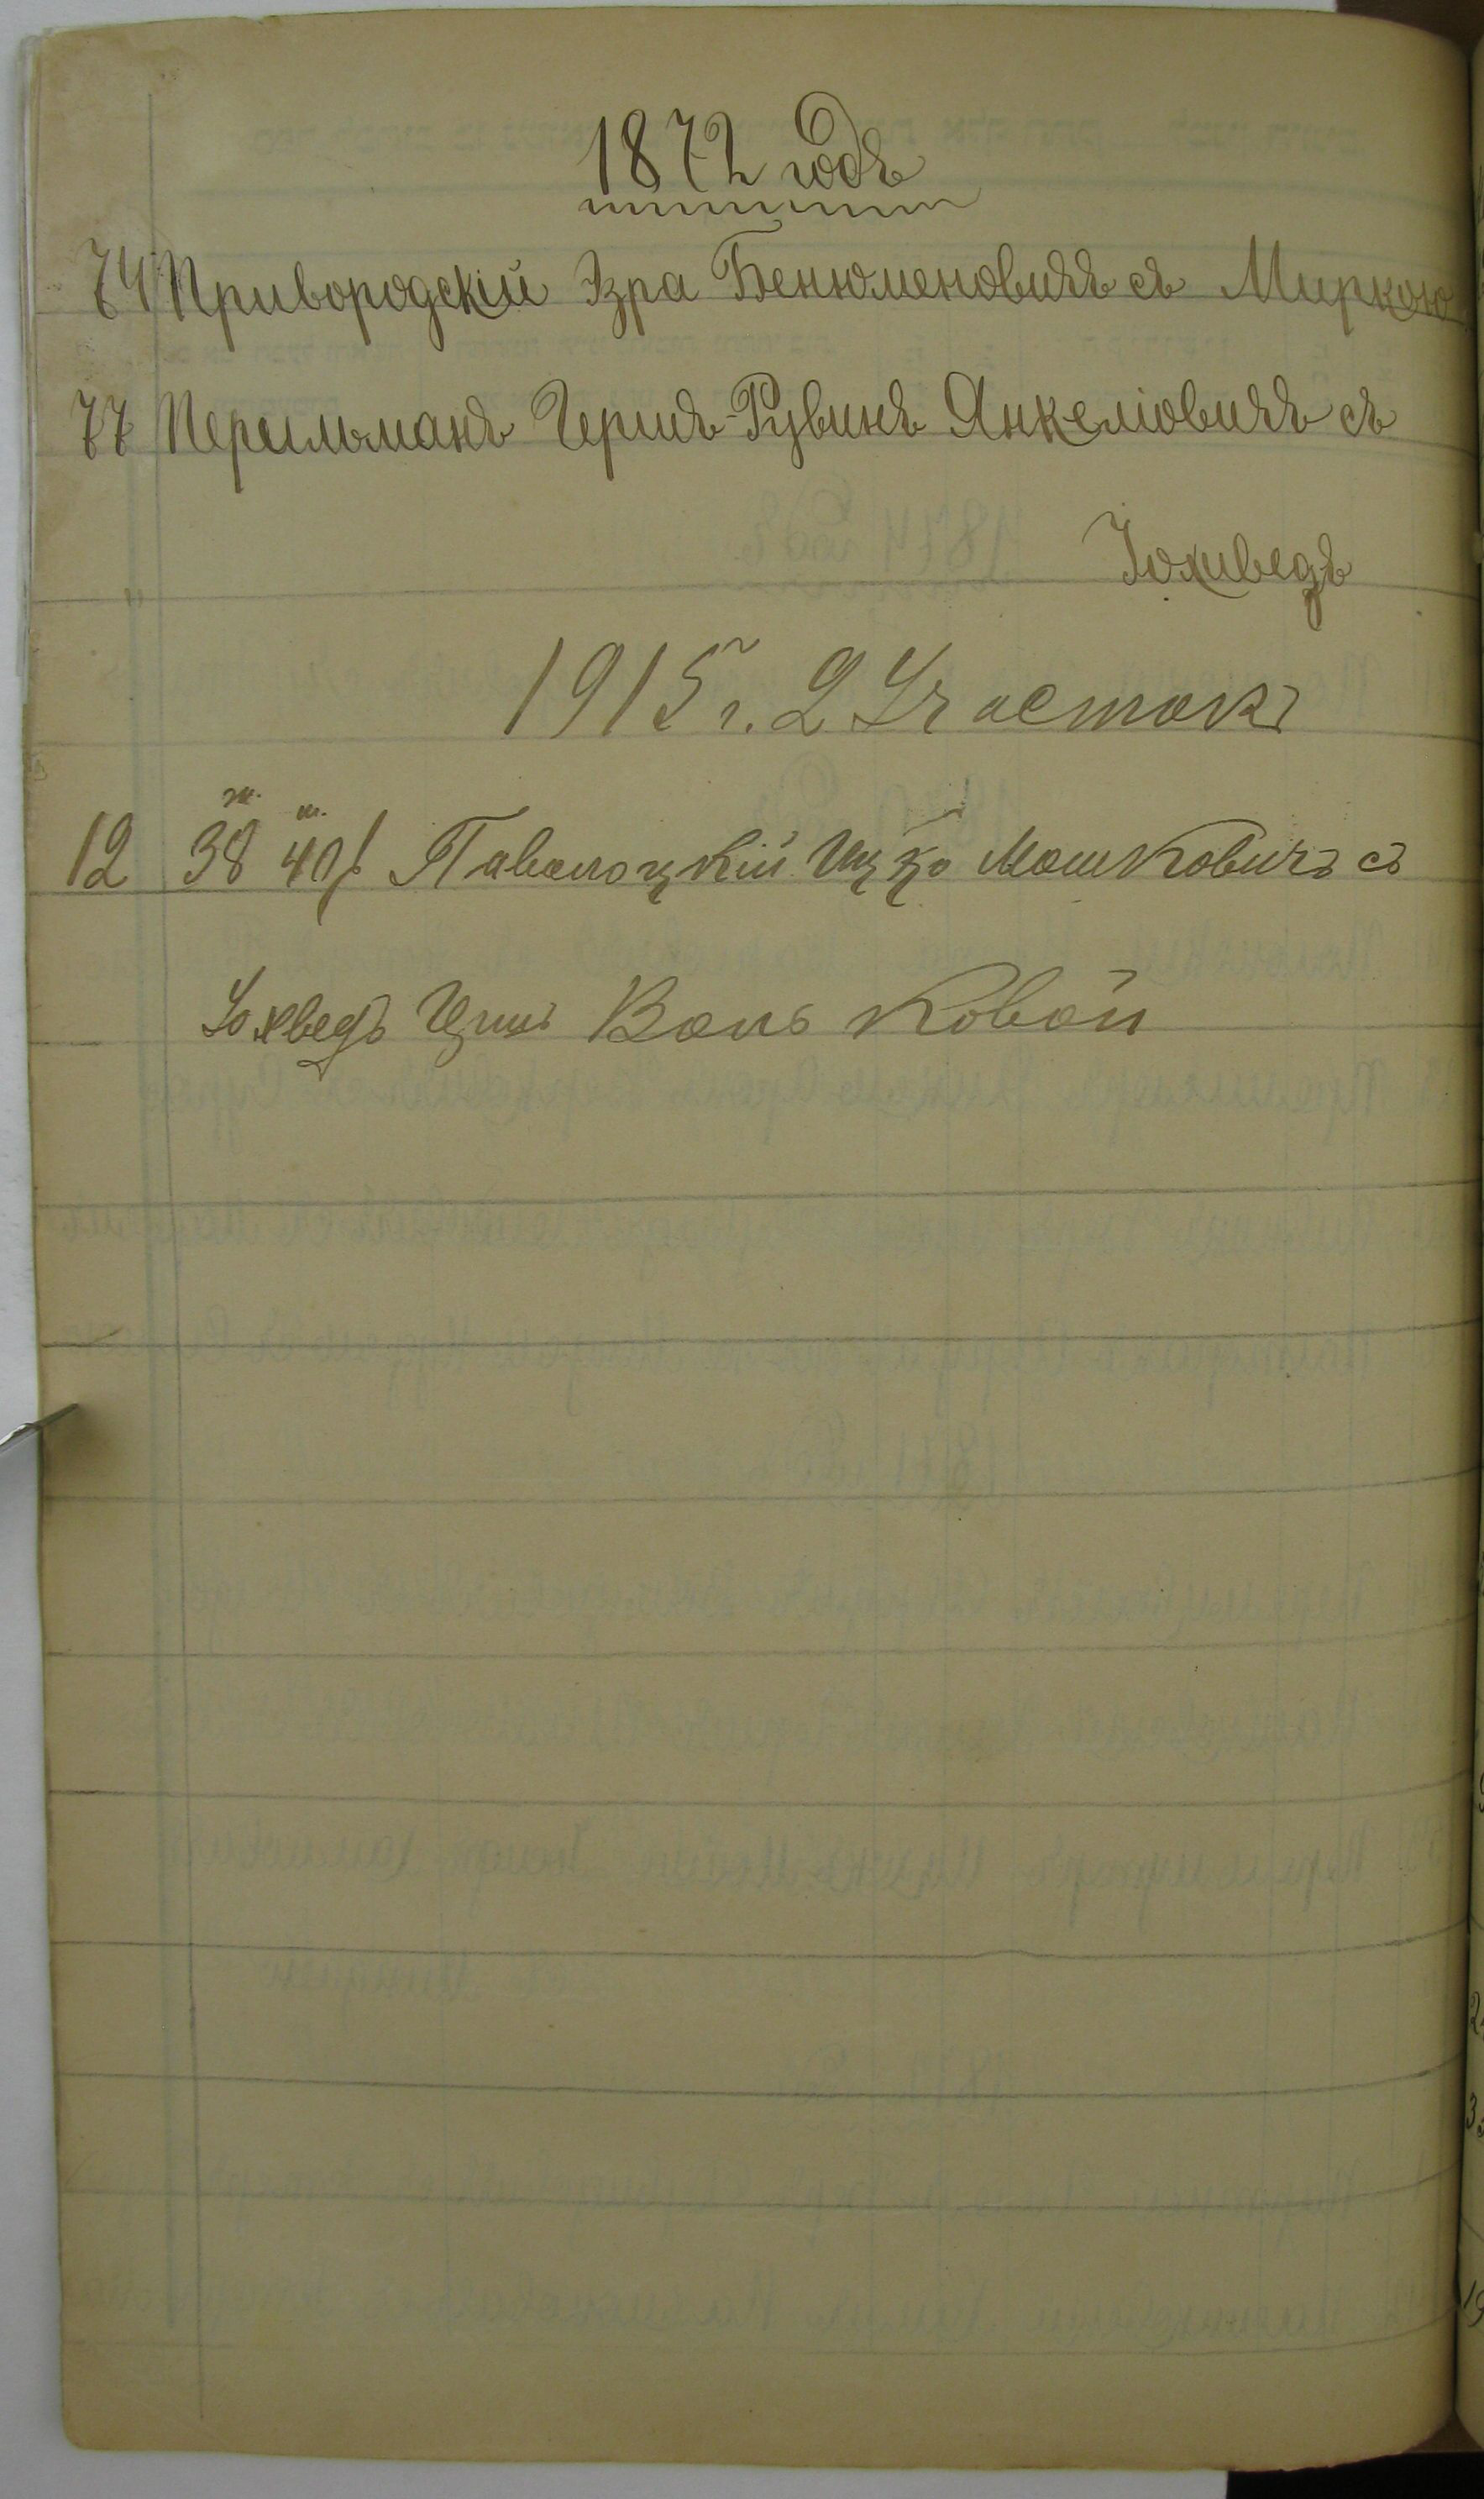 1872 годъ
74 Привородскій Эзра Бенюменовичъ съ Миркою
77 Перельманъ Гершъ-Рувинъ Янкеліовичъ съ
Іохиведъ
1915 г. 2 Участокъ
ж. м.
12 38 40 Паволоцкій Ицко Мошковичъ съ
Іохведъ Вольковой